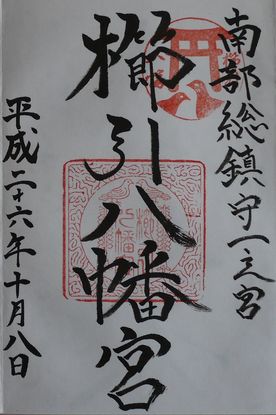 南部総鎮守一之宮
櫛引八幡宮
平成二十六年十月八日